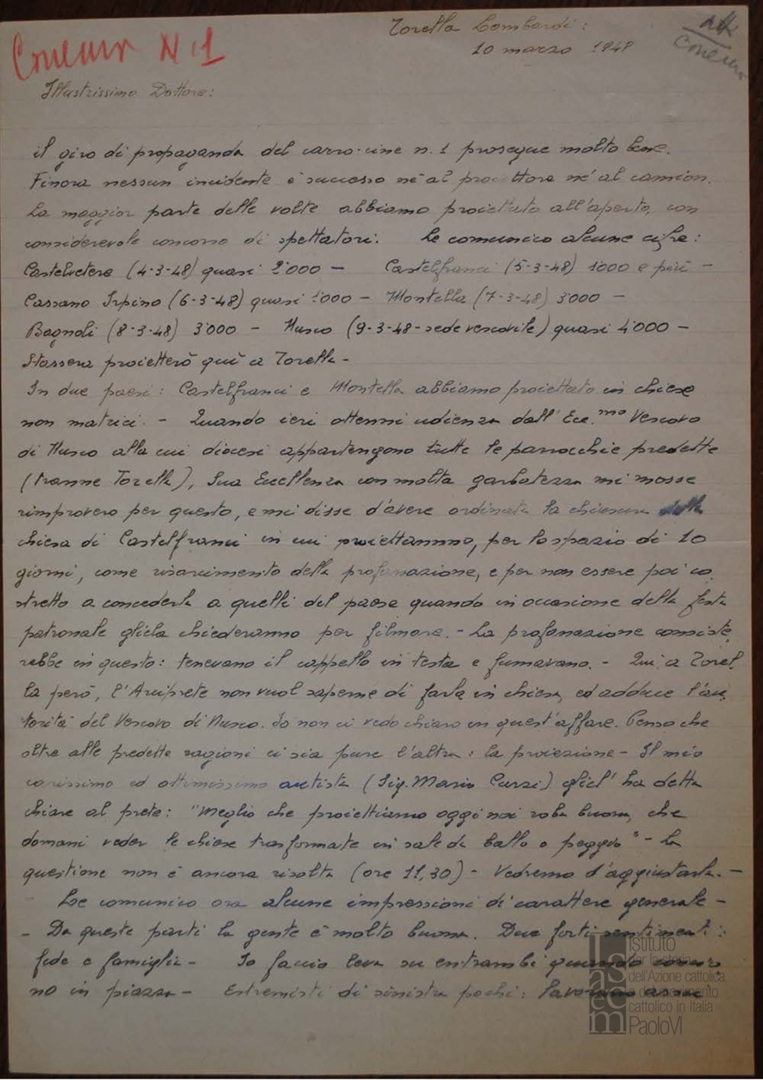 Torella Lombardi:
10 marzo 1948
Illustrissimo Dottore:
il giro di propaganda del carro-cine n. 1 prosegue molto bene.
Finora nessun incidente è successo nè al proiettore nè al camion.
La maggior parte delle volte abbiamo proiettato all'aperto, con
considerevole concorso di spettatori. Le comunico alcune cifre:
Castelvetere (4-3-48) quasi 2'000 - Castelfranci (5-3-48) 1000 e più -
Cassano Irpino (6-3-48) quasi 1'000 - Montella (7-3-48) 3'000 -
Bagnoli (8-3-48) 3'000 - Nusco (9-3-48 - sede vescovile) quasi 4'000 -
Stassera proietterò quì a Torella -
In due paesi: Castelfranci e Montella abbiamo proiettato in chiese
non matrici. - Quando ieri ottenni udienza dall'Ecc.mo Vescovo
di Nusco alla cui diocesi appartengono tutte le parrocchie predette
(tranne Torella), Sua Eccellenza con molta garbatezza mi mosse
rimprovero per questo, e mi disse d'avere ordinata la chiusura della
chiesa di Castelfranci in cui proiettammo, per lo spazio di 10
giorni, come risarcimento della profanazione, e per non essere poi co
stretto a concederla a quelli del paese quando in occasione della festa
patronale gliela chiederanno per filmare. - La profanazione consiste
rebbe in questo: tenevano il cappello in testa e fumavano. - Qui a Torel
la però, l'Arciprete non vuol saperne di farlo in chiesa, ed adduce l'au
torità del Vescovo di Nusco. Io non ci vedo chiaro in quest'affare. Penso che
oltre alle predette ragioni ci sia pure l'altra: la proiezione - Il mio
carissimo ed ottimissimo autista (Sig. Mario Curzi) gliel'ha detta
chiare al prete: "Meglio che proiettiamo oggi noi roba buona, che
domani veder le chiese trasformate in sale da ballo o peggio" - La
questione non è ancora risolta (ore 11,30) - Vedremo d'aggiustarla. -
Le comunico ora alcune impressioni di carattere generale -
- Da queste parti la gente è molto buona. Due forti sentimenti:
fede e famiglia - Io faccio leva su entrambi quando
no in piazza - Estremisti di sinistra pochi: lavorano assai
Istituto
per la storia
dell'Azione cattolica
e del movimento
cattolico in Italia
PaoloVI